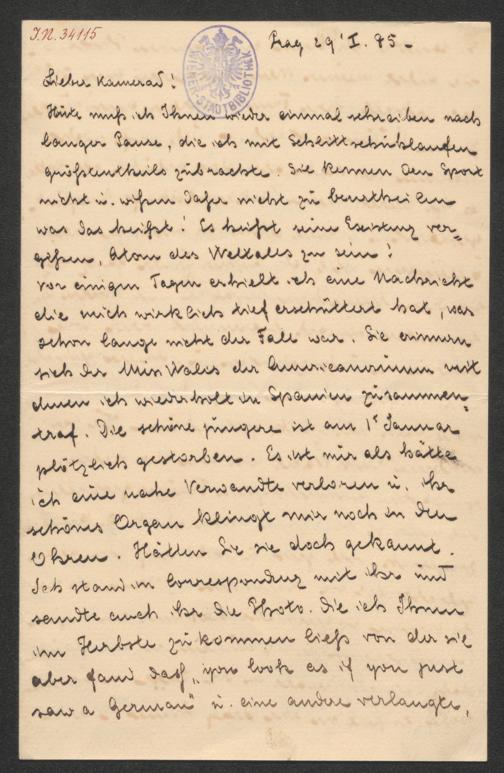 J.N. 34115
WIENER STADTBIBLIOTHEK
Prag 29' I. 95.
Lieber Kamerad!
Heute muß ich Ihnen wieder einmal schreiben nach
langer Pause, die ich mit Schlittschuhlaufen
größtentheils zubrachte. Sie kennen den Sport
nicht u. wißen daher nicht zu beurtheilen
was das heißt! Es heißt seine Existenz ver-
gißen, Atom des Weltalls zu sein!
Vor einigen Tagen erhielt ich eine Nachricht
die mich wirklich tief erschüttert hat, was
schon lange nicht der Fall war. Sie erinnern
sich der Miss Wales der Americanerinnen mit
denen ich wiederholt in Spanien zusammen-
traf. Die schöne jüngere ist am 1t Januar
plötzlich gestorben. Es ist mir als hätte
ich eine nahe Verwandte verloren u. ihr
schönes Organ klingt mir noch in den
Ohren. Hätten Sie sie doch gekannt.
Ich stand in Correspondenz mit ihr und
sandte auch ihr die Photo. die ich Ihnen
im Herbste zukommen ließ von der sie
aber fand daß „you look as if you just
saw a German" u. eine andere verlangte,